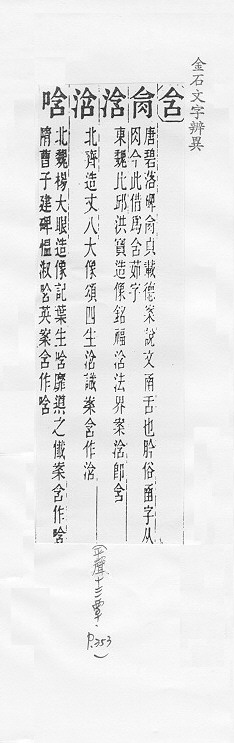 金石文字辨異
含
肏
唐碧落碑肏貞載德案說文肏舌也肣俗肏字从
肉今此借爲含茹字
浛
東魏比丘洪寶造像銘福浛法界案浛即含
浛
北齊造丈八大像頌四生浛識案含作浛
唅
北魏楊大眼造像記葉生唅靡與之懺案含作唅
隋曹子建碑慍淑唅英案含作唅
(平聲十三覃.
P.353)